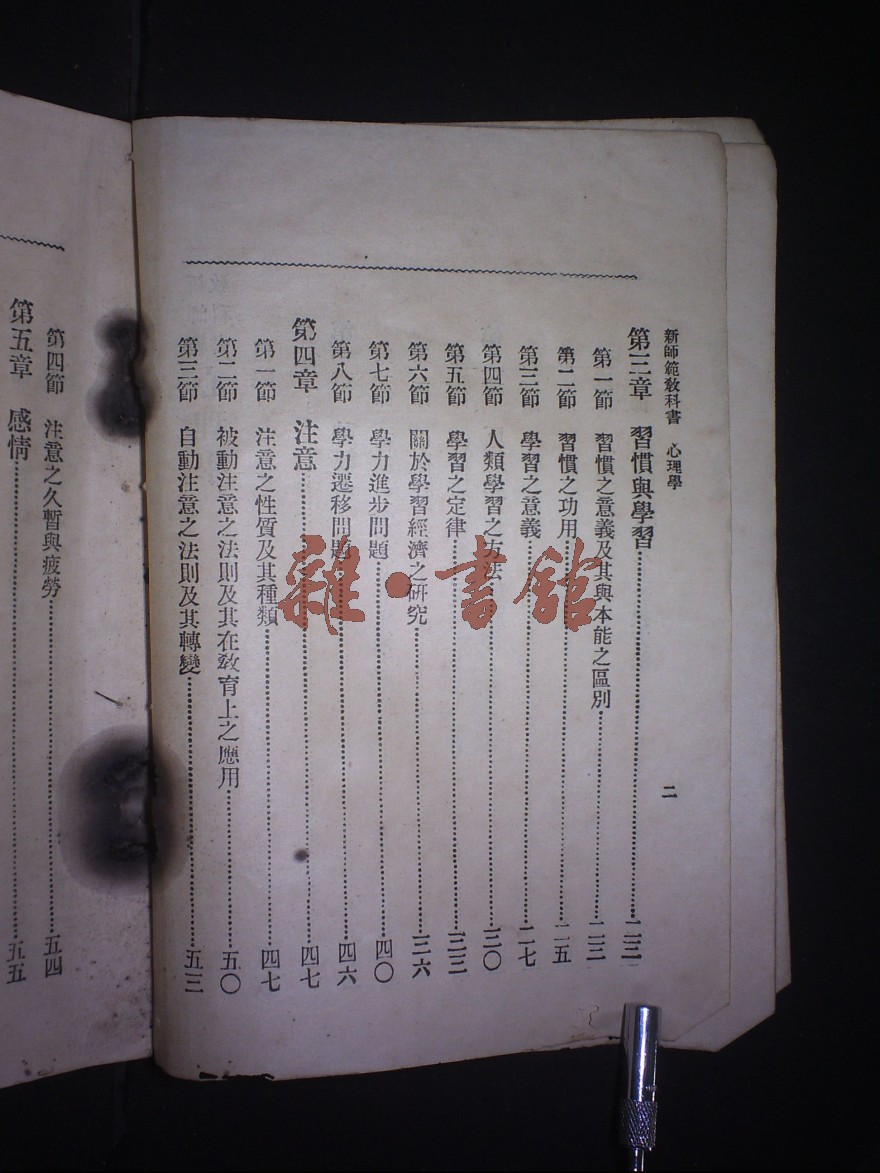 新師範教科書　心理學　二
第三章　習慣與學習……二三
第一節　習慣之意義及其與本能之區別……二三
第二節　習慣之功用……二五
第三節　學習之意義……二七
第四節　人類學習之方法……三〇
第五節　學習之定律……三三
第六節　關於學習經濟之研究……三六
第七節　學力進步問題……四〇
第八節　學力遷移問題……四六
第四章　注意……四七
第一節　注意之性質及其種類……四七
第二節　被動注意之法則及其在教育上之應用……五〇
第三節　自動注意之法則及其轉變……五三
第四節　注意之久暫與疲勞……五四
第五章　感情……五五
雜·書館